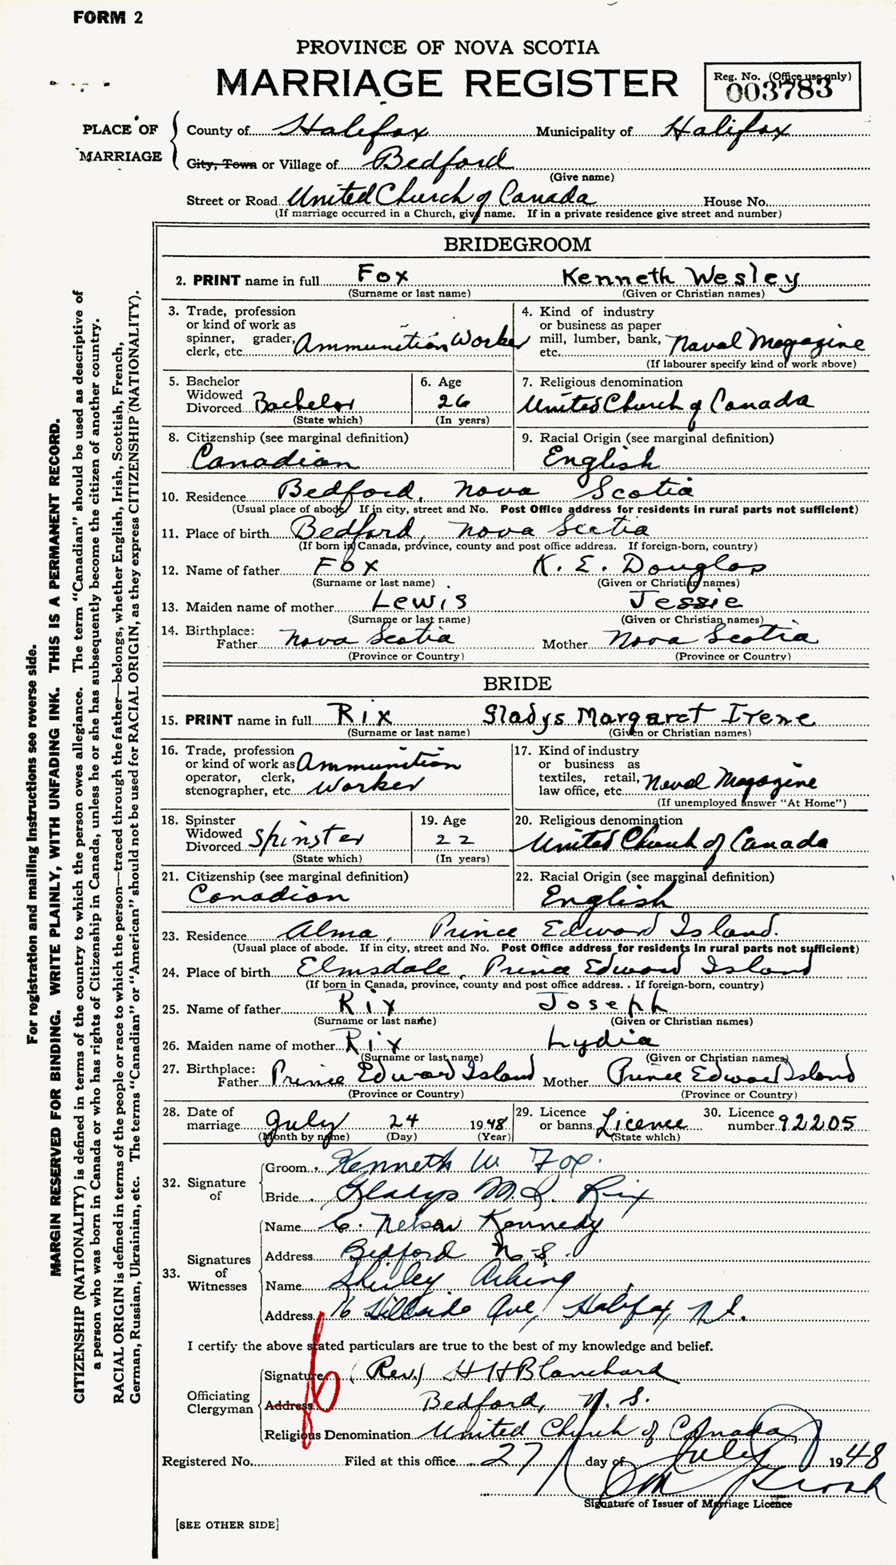 FORM 2
PROVINCE OF NOVA SCOTIA
MARRIAGE REGISTER
Reg. No. (Office use only)
003783
PLACE OF MARRIAGE
County of Halifax Municipality of Halifax
City, Town or Village of Bedford
(Give name)
Street or Road United Church of Canada House No.
(If marriage occurred in a Church, give name. If in a private residence give street and number)
BRIDEGROOM
2. PRINT name in full Fox Kenneth Wesley
(Surname or last name) (Given or Christian names)
3. Trade, profession or kind of work as spinner, grader, clerk, etc. Ammunition Worker
4. Kind of industry or business as paper mill, lumber, bank, etc. Naval Magazine
(If labourer specify kind of work above)
5. Bachelor Widowed Divorced Bachelor
(State which)
6. Age 26
(In years)
7. Religious denomination
United Church of Canada
8. Citizenship (see marginal definition)
Canadian
9. Racial Origin (see marginal definition)
English
10. Residence Bedford, Nova Scotia
(Usual place of abode. If in city, street and No. Post Office address for residents in rural parts not sufficient)
11. Place of birth Bedford, Nova Scotia
(If born in Canada, province, county and post office address. If foreign-born, country)
12. Name of father Fox K. E. Douglas
(Surname or last name) (Given or Christian names)
13. Maiden name of mother Lewis Jessie
(Surname or last name) (Given or Christian names)
14. Birthplace: Father Nova Scotia Mother Nova Scotia
(Province or Country) (Province or Country)
BRIDE
15. PRINT name in full Rix Gladys Margaret Irene
(Surname or last name) (Given or Christian names)
16. Trade, profession or kind of work as operator, clerk, stenographer, etc. Ammunition Worker
17. Kind of industry or business as textiles, retail, law office, etc. Naval Magazine
(If unemployed answer "At Home")
18. Spinster Widowed Divorced Spinster
(State which)
19. Age 22
(In years)
20. Religious denomination
United Church of Canada
21. Citizenship (see marginal definition)
Canadian
22. Racial Origin (see marginal definition)
English
23. Residence Alma, Prince Edward Island.
(Usual place of abode. If in city, street and No. Post Office address for residents in rural parts not sufficient)
24. Place of birth Elmsdale, Prince Edward Island
(If born in Canada, province, county and post office address. If foreign-born, country)
25. Name of father Rix Joseph
(Surname or last name) (Given or Christian names)
26. Maiden name of mother Rix Lydia
(Surname or last name) (Given or Christian names)
27. Birthplace: Father Prince Edward Island Mother Prince Edward Island
(Province or Country) (Province or Country)
28. Date of marriage July 24 1948
(Month by name) (Day) (Year)
29. Licence or banns Licence
(State which)
30. Licence number 92205
32. Signature of
Groom Kenneth W. Fox.
Bride Gladys M. I. Rix
33. Signatures of Witnesses
Name C. Nelson Kennedy
Address Bedford N.S.
Name Shirley
Address 16 Hillside Ave, Halifax, N.S.
I certify the above stated particulars are true to the best of my knowledge and belief.
Officiating Clergyman
Signature (Rev.) H H Blanchard
Address Bedford, N. S.
Religious Denomination United Church of Canada
Registered No. Filed at this office 27 day of July 1948
Signature of Issuer of Marriage Licence
[SEE OTHER SIDE]
For registration and mailing instructions see reverse side.
MARGIN RESERVED FOR BINDING. WRITE PLAINLY, WITH UNFADING INK. THIS IS A PERMANENT RECORD.
CITIZENSHIP (NATIONALITY) is defined in terms of the country to which the person owes allegiance. The term "Canadian" should be used as descriptive of
a person who was born in Canada or who has rights of Citizenship in Canada, unless he or she has subsequently become the citizen of another country.
RACIAL ORIGIN is defined in terms of the people or race to which the person—traced through the father—belongs, whether English, Irish, Scottish, French,
German, Russian, Ukrainian, etc. The terms "Canadian" or "American" should not be used for RACIAL ORIGIN, as they express CITIZENSHIP (NATIONALITY).